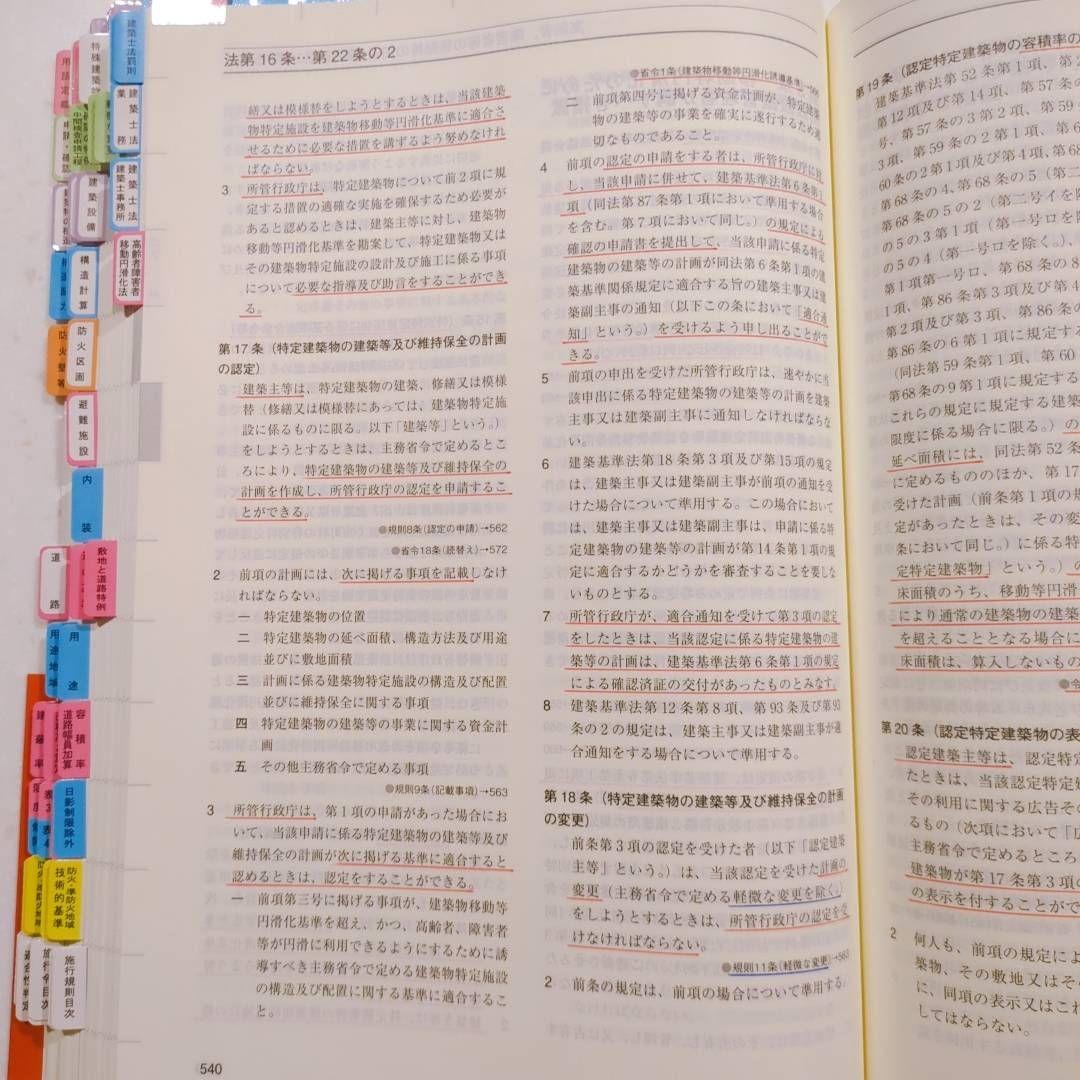 法第16条…第22条の2
繕又は模様替をしようとするときは、当該建築
物特定施設を建築物移動等円滑化基準に適合さ
せるために必要な措置を講ずるよう努めなけれ
ばならない。
3 所管行政庁は、特定建築物について前2項に規
定する措置の適確な実施を確保するため必要が
あると認めるときは、建築主等に対し、建築物
移動等円滑化基準を勘案して、特定建築物又は
その建築物特定施設の設計及び施工に係る事項
について必要な指導及び助言をすることができ
る。
第17条（特定建築物の建築等及び維持保全の計画
の認定）
建築主等は、特定建築物の建築、修繕又は模様
替（修繕又は模様替にあっては、建築物特定施
設に係るものに限る。以下「建築等」という。）
をしようとするときは、主務省令で定めるとこ
ろにより、特定建築物の建築等及び維持保全の
計画を作成し、所管行政庁の認定を申請するこ
とができる。
●規則8条（認定の申請）→562
●省令18条（読替え）→572
2 前項の計画には、次に掲げる事項を記載しなけ
ればならない。
一 特定建築物の位置
二 特定建築物の延べ面積、構造方法及び用途
並びに敷地面積
三 計画に係る建築物特定施設の構造及び配置
並びに維持保全に関する事項
四 特定建築物の建築等の事業に関する資金計
画
五 その他主務省令で定める事項
●規則9条（記載事項）→563
3 所管行政庁は、第1項の申請があった場合にお
いて、当該申請に係る特定建築物の建築等及び
維持保全の計画が次に掲げる基準に適合すると
認めるときは、認定をすることができる。
一 前項第三号に掲げる事項が、建築物移動等
円滑化基準を超え、かつ、高齢者、障害者
等が円滑に利用できるようにするために誘
導すべき主務省令で定める建築物特定施設
の構造及び配置に関する基準に適合するこ
と。
540
●省令1条（建築物移動等円滑化誘導基準）
二 前項第四号に掲げる資金計画が、特定建築
物の建築等の事業を確実に遂行するため適
切なものであること。
4 前項の認定の申請をする者は、所管行政庁に対
し、当該申請に併せて、建築基準法第6条第1
項（同法第87条第1項において準用する場合
を含む。第7項において同じ。）の規定による
確認の申請書を提出して、当該申請に係る特定
建築物の建築等の計画が同法第6条第1項の建
築基準関係規定に適合する旨の建築主事又は建
築副主事の通知（以下この条において「適合通
知」という。）を受けるよう申し出ることがで
きる。
5 前項の申出を受けた所管行政庁は、速やかに当
該申出に係る特定建築物の建築等の計画を建築
主事又は建築副主事に通知しなければならな
い。
6 建築基準法第18条第3項及び第15項の規定
は、建築主事又は建築副主事が前項の通知を受
けた場合について準用する。この場合において
は、建築主事又は建築副主事は、申請に係る特
定建築物の建築等の計画が第14条第1項の規
定に適合するかどうかを審査することを要しな
いものとする。
7 所管行政庁が、適合通知を受けて第3項の認定
をしたときは、当該認定に係る特定建築物の建
築等の計画は、建築基準法第6条第1項の規定
による確認済証の交付があったものとみなす。
8 建築基準法第12条第8項、第93条及び第93
条の2の規定は、建築主事又は建築副主事が適
合通知をする場合について準用する。
第18条（特定建築物の建築等及び維持保全の計画
の変更）
前条第3項の認定を受けた者（以下「認定建築
主等」という。）は、当該認定を受けた計画の
変更（主務省令で定める軽微な変更を除く。）
をしようとするときは、所管行政庁の認定を受
けなければならない。
●規則11条（軽微な変更）→563
2 前条の規定は、前項の場合について準用する。
第19条（認定特定建築物の容積率の
建築基準法第52条第1項、第2
第12項及び第14項、第57条
号、第57条の3第2項、第59
3項、第59条の2第1項、第6
60条の2第1項及び第4項、第68
第68条の4、第68条の5（第二
第68条の5の2（第二号イを除
の5の3第1項（第一号ロを除
の5の4（第一号ロを除く。）、
1項第一号ロ、第68条の8
1項、第86条第3項及び第4
第2項及び第3項、第86条
第86条の6第1項に規定する
（同法第59条第1項、第60
第68条の9第1項に規定する
これらの規定に規定する建築
限度に係る場合に限る。）の
延べ面積には、同法第52条
に定めるもののほか、第17
受けた計画（前条第1項の規
定があったときは、その変
条において同じ。）に係る特
定特定建築物」という。）の
床面積のうち、移動等円滑
により通常の建築物の建築
を超えることとなる場合に
床面積は、算入しないもの
●令
第20条（認定特定建築物の表
認定建築主等は、認定特定
たときは、当該認定特定建
その利用に関する広告その
るもの（次項において「広
主務省令で定めるところ
建築物が第17条第3項の
の表示を付することがで
2 何人も、前項の規定によ
築物、その敷地又はその
に、同項の表示又はこれ
してはならない。
建築士法罰則
建築士法
業務
建築士法
建築士事務所
高齢者障害者
移動円滑化法
中間検査申請工程
建築設備
構造計算
防火区画
防火壁等
避難施設
内装
道路
敷地と道路特例
用途
用途地域
容積率
道路幅員加算
建蔽率
日影制限除外
防火・準防火地域
技術的基準
施行規則目次
施行令目次
適合性判定